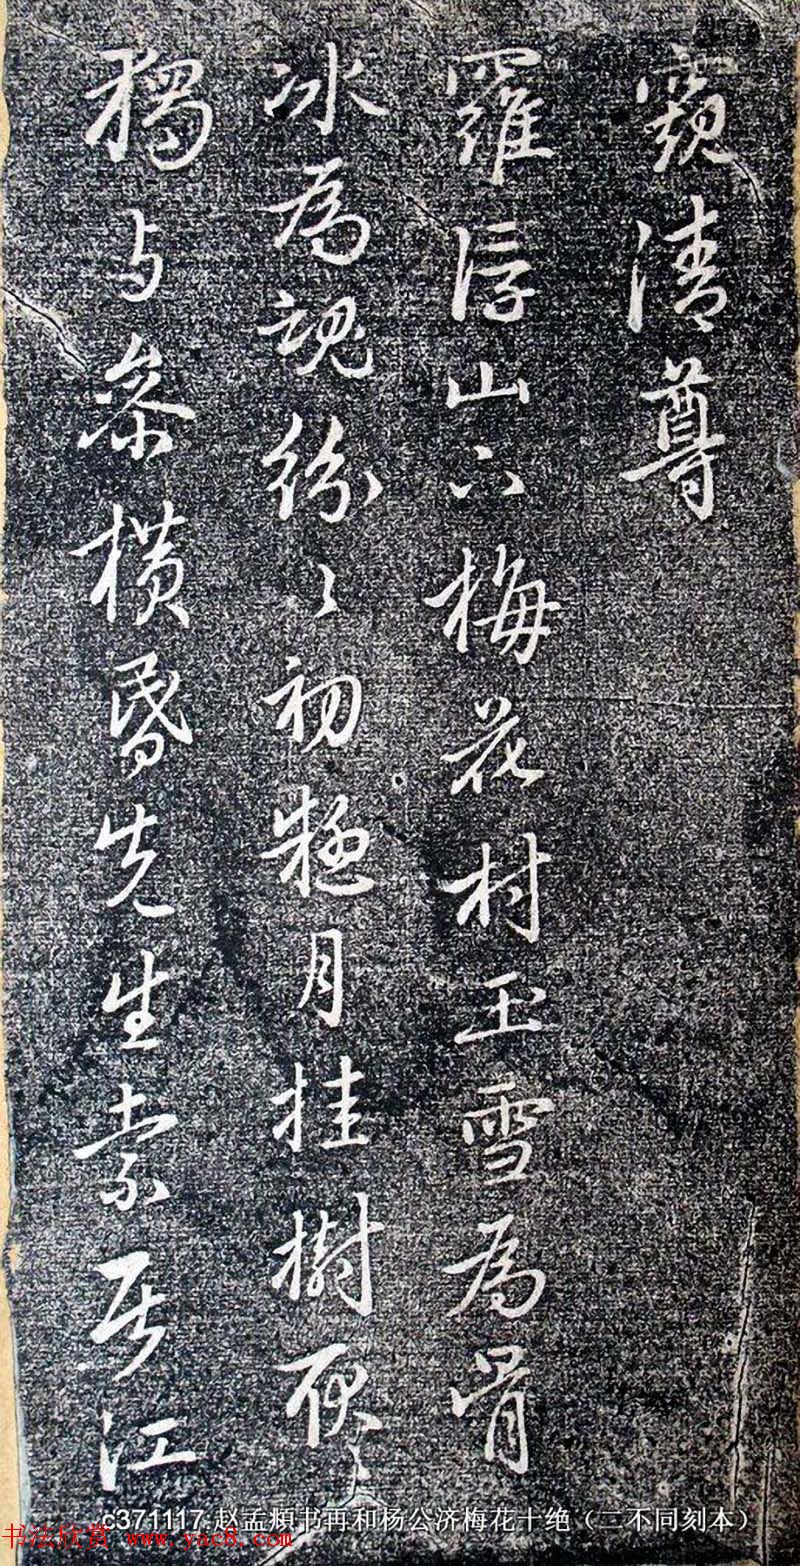 窺清尊
羅浮山下梅花村玉雪為骨
冰為魂紛〻初疑月挂樹耿〻
獨与參橫昏先生索居江
c371117 赵孟頫书再和杨公济梅花十绝（二不同刻本）
书法欣赏 www.yac8.com